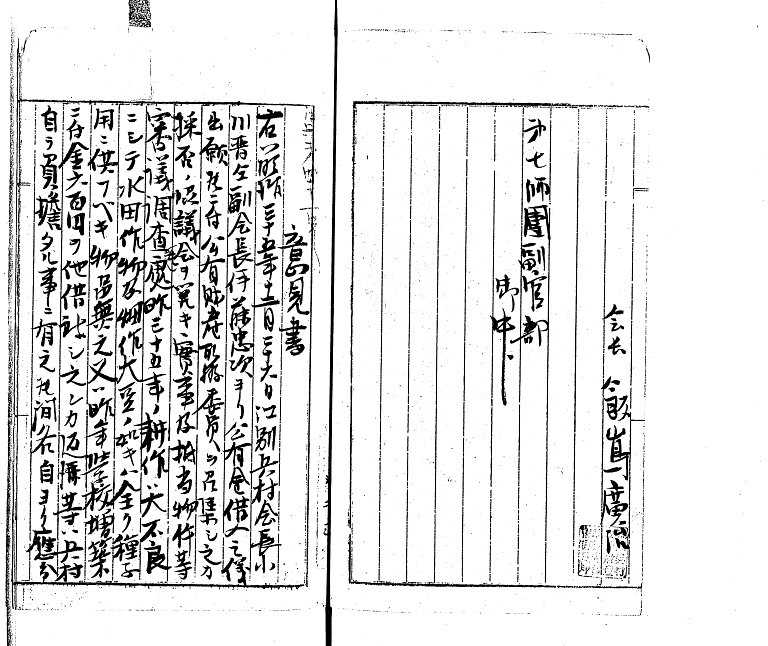 会長 飯嶌廣治
㐧七師團副官部
御中
意見書
右ハ明治三十五年十二月二十六日江別兵村会長小
川晋仝副会長伊藤忠次ヨリ公有金借入之儀
出願候ニ付公有財産取扱委員ヲ召集シ之カ
採否ノ决議会ヲ開キ實事及抵当物件等
審議調査處昨三十五年ノ耕作ハ大不良
ニシテ水田作物及畑作大豆ノ如キハ全ク種子
用ニ供フベキ物ダ無之又ハ昨年学校増築
ニ付金六百円ヲ他借致シ之レカ返済等ハ兵村
自ラ負擔タル事ニ有之候間各自ヨリ應分